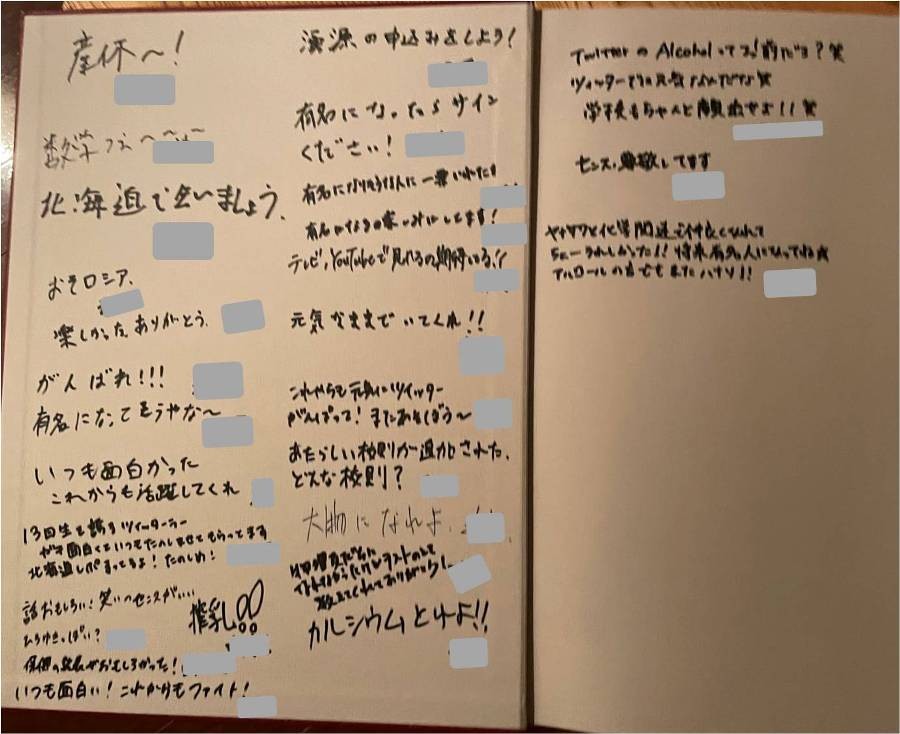 産休〜！
数学
北海道で会いましょう.
おそロシア.
楽しかった ありがとう.
がんばれ!!!
有名になってそうやな〜
いつも面白かった
これからも活躍してくれ
13回生を誇るツイッターラー
ガチ面白くていつもたのしませてもらってます
北海道レポまってるよ！たのしめ！
話おもしろい！笑いのセンスがいい
搾乳!!
がおもしろかった！
いつも面白い！これからもファイト！
の申込みをしよう！
有名になったらサイン
ください！
有名になりそうな人に一票いれたわ
有名になるの楽しみにしてます！
テレビ、YouTubeで見れるの期待してる!!
元気なままでいてくれ!!
これからも元気にツイッター
がんばって！またあそぼう〜
あたらしい校則が追加された.
どんな校則？
大物になれよ
教えてくれてありがとう！
カルシウムとれよ!!
TwitterのAlcoholってお前だろ？笑
ツイッターで 笑
学校もちゃんと 笑
センス、尊敬してます
化学関連で仲良くなれて
うれしかった!! 将来有名人になってね☆
アルコールの方でもまた